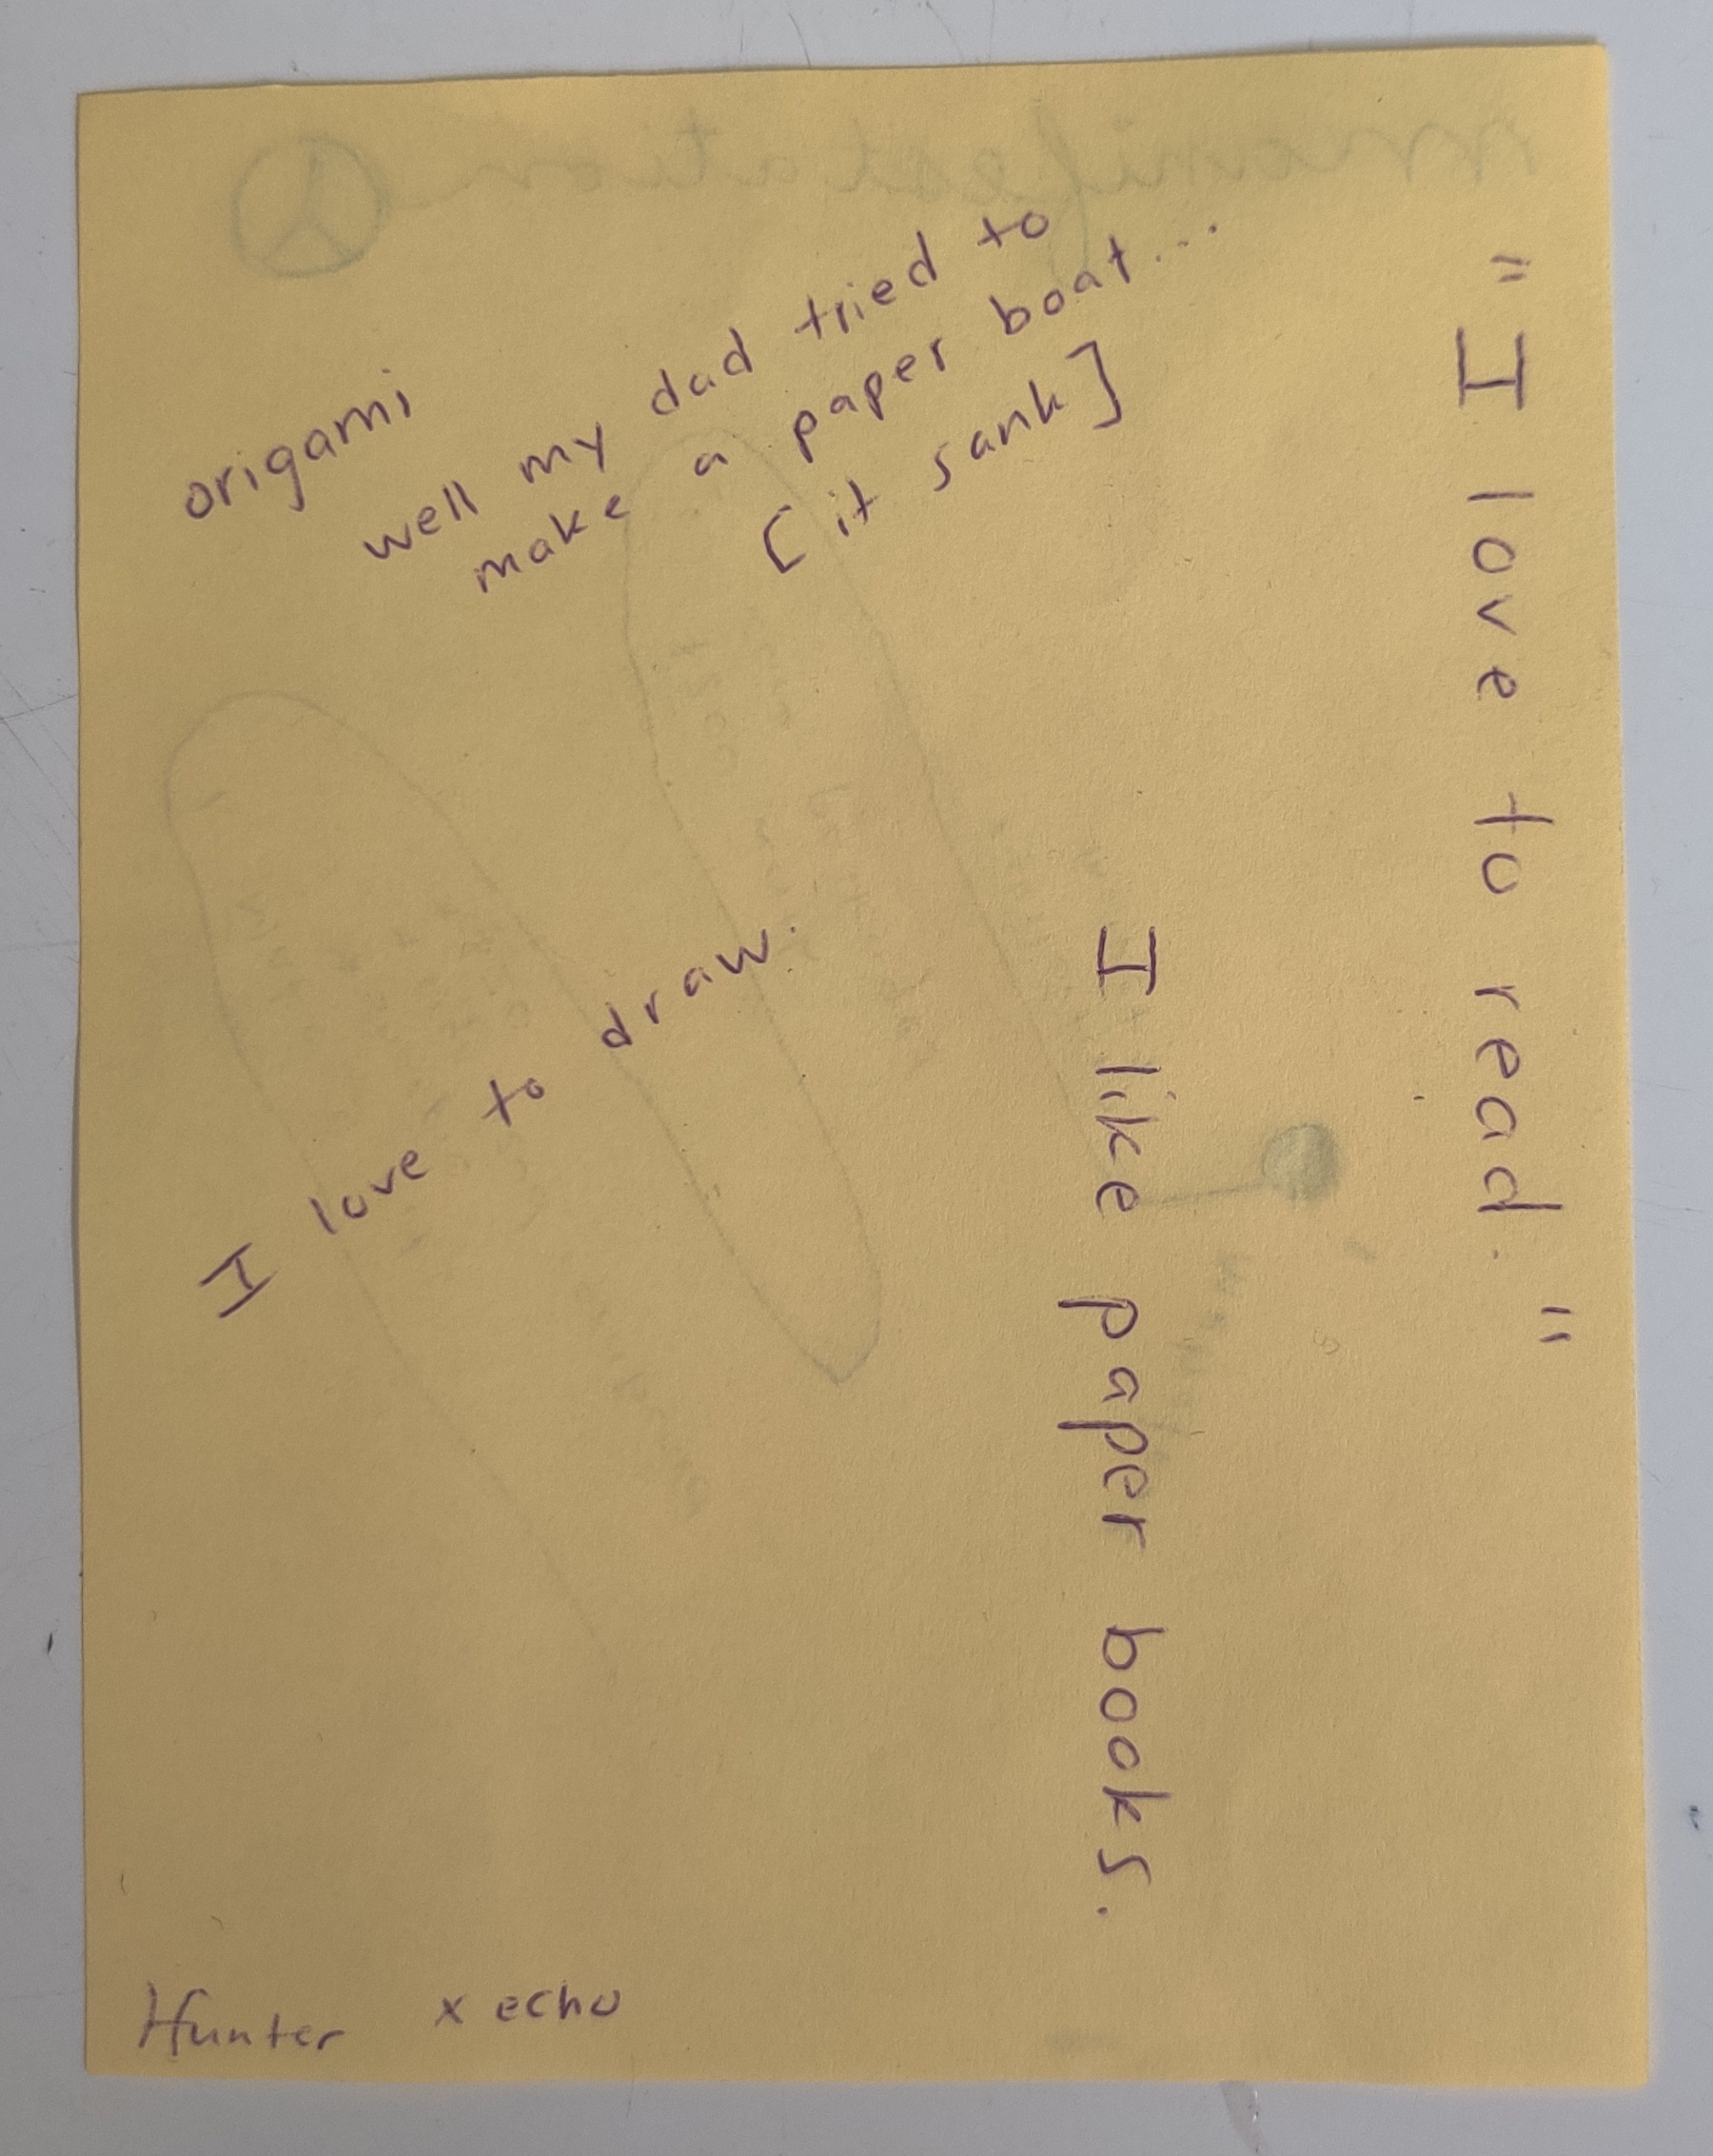 origami
well my dad tried to
make a paper boat...
[it sank]
"I love to read."
I like paper books.
I love to draw.
Hunter x echo
manifestation